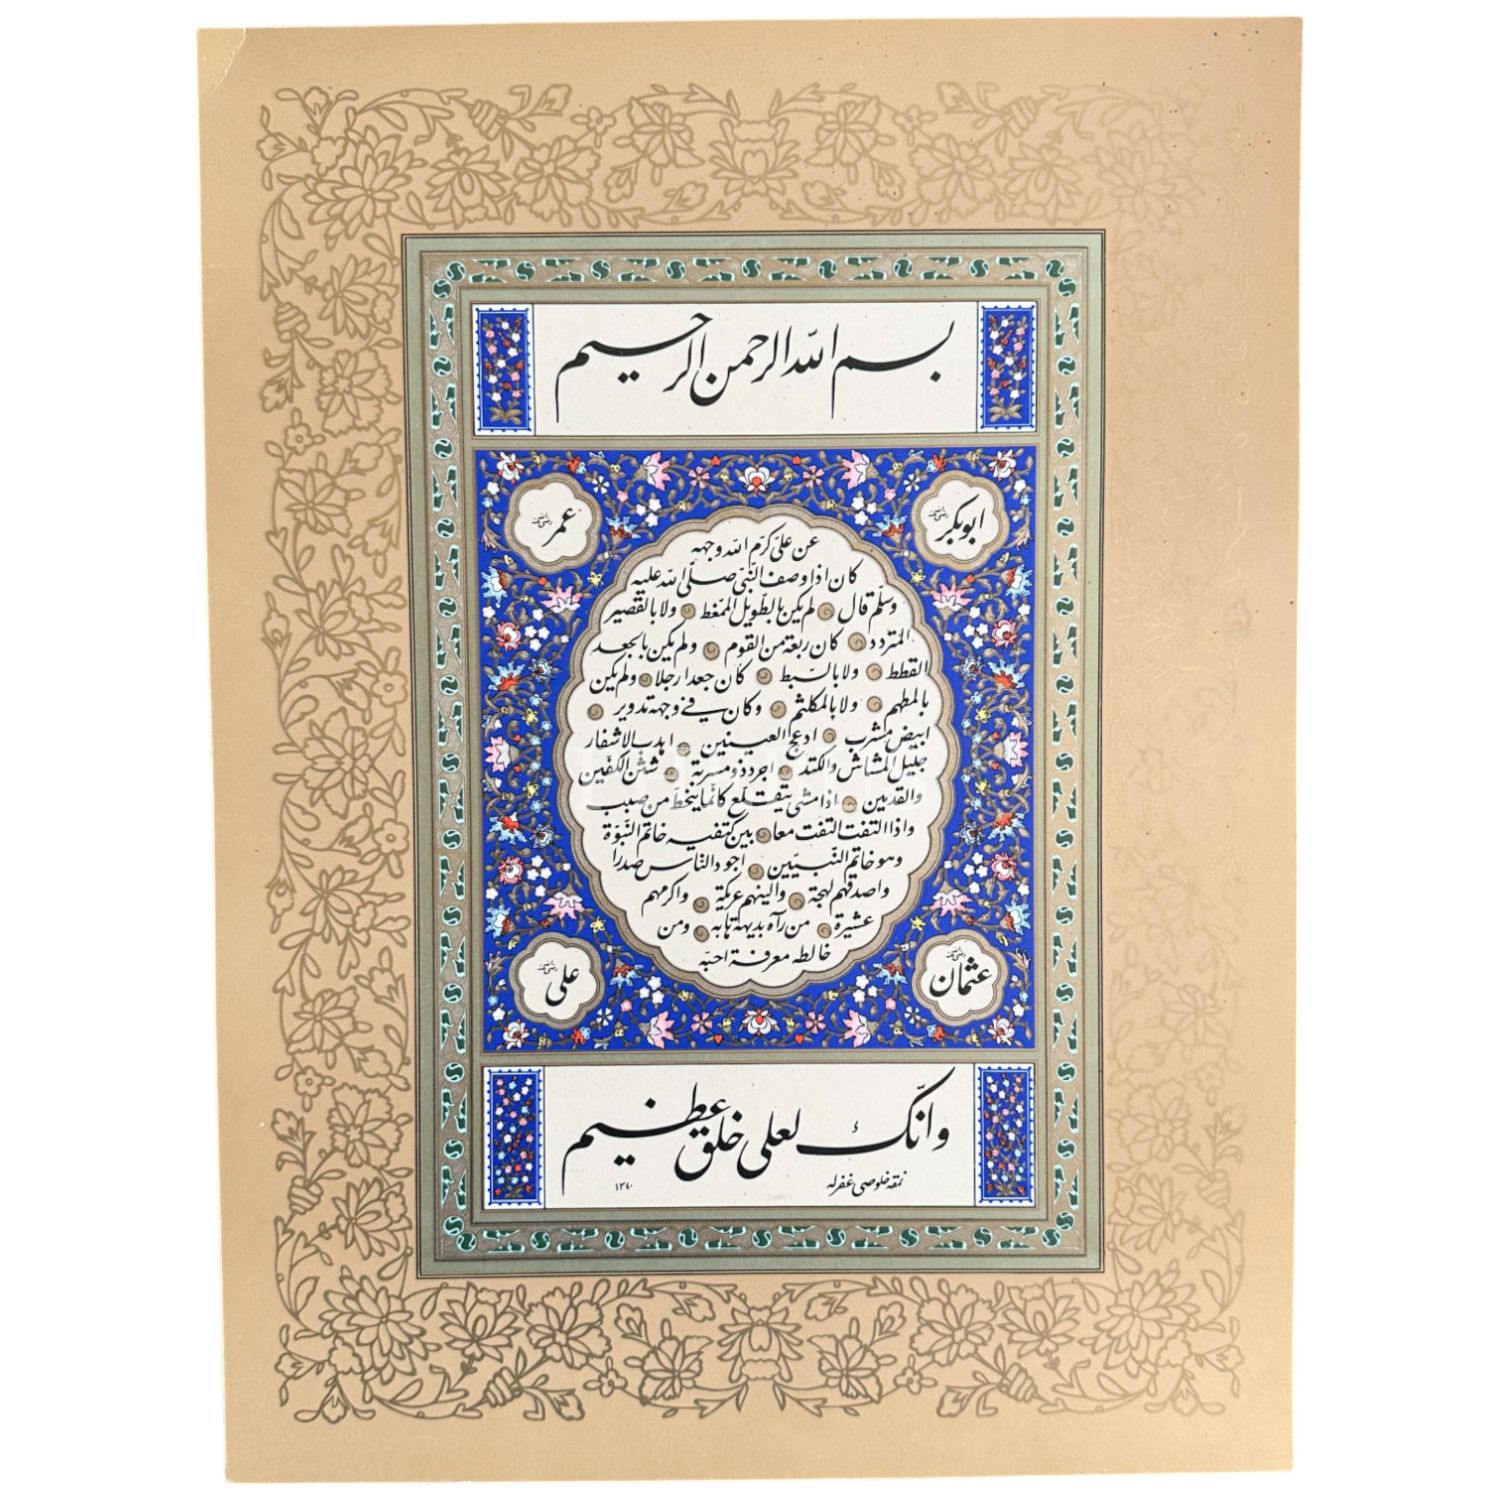 بسم الله الرحمن الرحيم
ابوبكر رضي الله عنه
عمر رضي الله عنه
عن علىّ كرّم الله وجهه
كان اذا وصف النّبىّ صلّى الله عليه
وسلّم قال لم يكن بالطّويل الممّغط ولا بالقصير
المتردد كان ربعة من القوم ولم يكن بالجعد
القطط ولا بالسّبط كان جعدا رجلا ولم يكن
بالمطهم ولا بالمكلثم وكان فى وجهه تدوير
ابيض مشرب ادعج العينين اهدب الاشفار
جليل المشاش والكتد اجرد ذو مسربة شثن الكفّين
والقدمين اذا مشى يتقلّع كانّما ينحطّ من صبب
واذا التفت التفت معا بين كتفيه خاتم النّبوّة
وهو خاتم النّبيّين اجود النّاس صدرا
واصدقهم لهجة والينهم عريكة واكرمهم
عشيرة من رآه بديهة هابه ومن
خالطه معرفة احبّه
عثمان رضي الله عنه
على رضي الله عنه
وانّك لعلى خلق عظيم
نمقه خلوصى غفرله
١٣٨٠